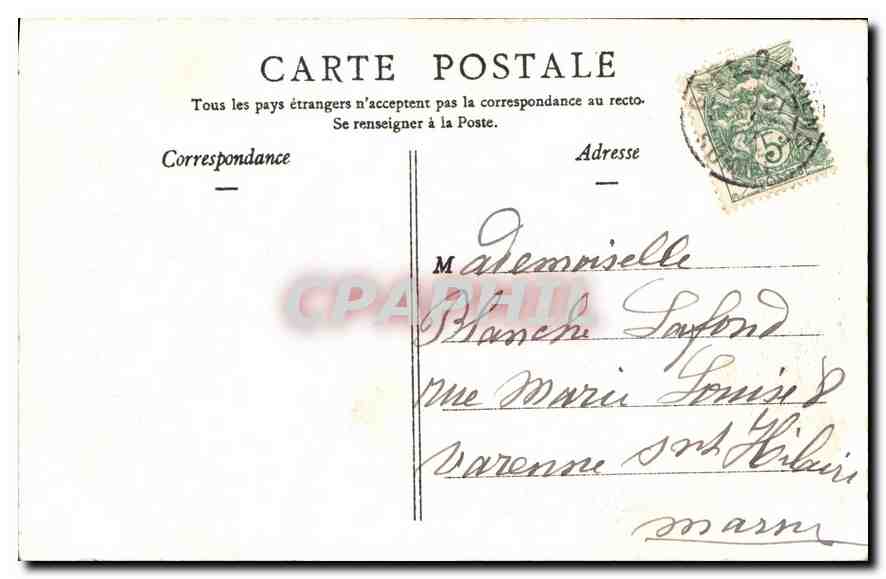 CARTE POSTALE
Tous les pays étrangers n'acceptent pas la correspondance au recto.
Se renseigner à la Poste.
Correspondance
Adresse
5c
Mademoiselle
CPAPHIL
Blanche Lafond
rue Marie Louise 8
Varenne Snt Hilaire
Marne